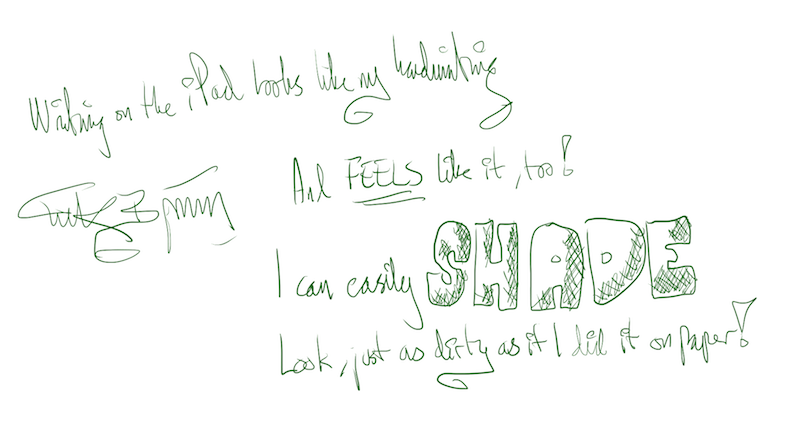 Writing on the iPad looks like my handwriting
And FEELS like it, too!
I can easily SHADE
Look, just as dirty as if I did it on paper!